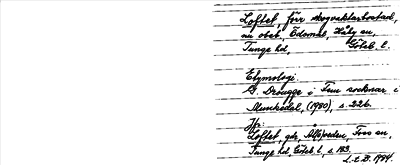 Loftet, förr skogvaktarbostad,
nu obeb. Edsmal, Håby sn,
Tunge hd, Göteb. l.
Etymologi:
G. Drougge i Fem socknar i
Munkedal, (1980), s. 226.
Jfr:
Loftet, gd, Foss sn,
Tunge hd Göteb. l, s. 183.
L.C.B. 1984.